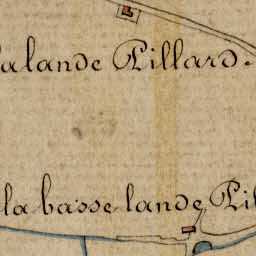 alande Pillard.
la basse lande Pil